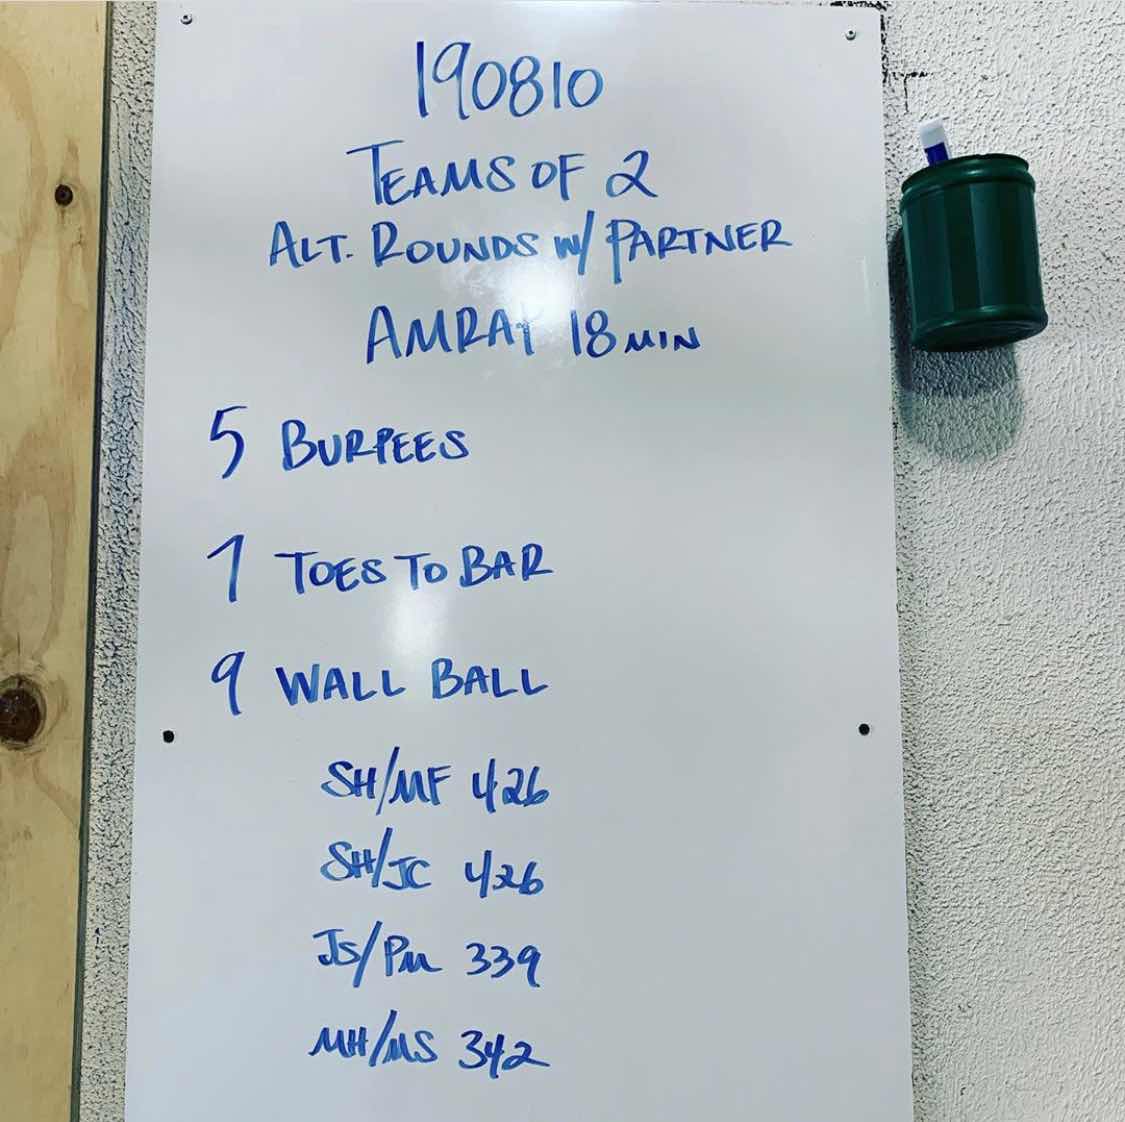 190810
TEAMS OF 2
ALT. ROUNDS W/ PARTNER
AMRAP 18 MIN
5 BURPEES
7 TOES TO BAR
9 WALL BALL
SH/MF 426
SH/JC 426
JS/PM 339
MH/MS 342